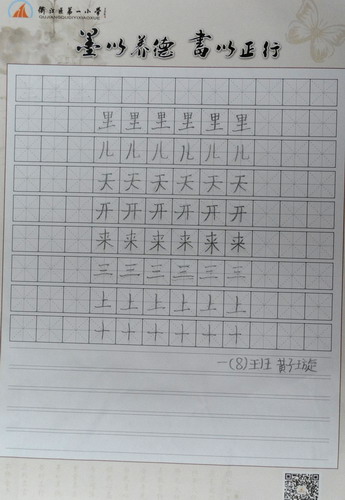 第一小学
墨以养德 書以正行
里里里里里里
儿儿儿儿儿儿
天天天天天天
开开开开开开
来来来来来来
三三三三三三
上上上上上上
十十十十十十
一(8)王